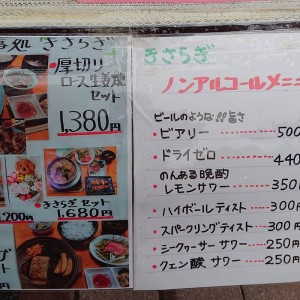 処 きさらぎ
厚切り
ロース生姜焼
セット
1,380円
きさらぎセット
1,680円
1,200円
きさらぎ
ノンアルコールメニ
ビールのような!! 旨さ
・ビアリー 500
・ドライゼロ 440
のんある晩酌
・レモンサワー 350
・ハイボールテイスト 300円
・スパークリングテイスト 300円
・シークヮーサー サワー 250円
・クエン酸 サワー 250円